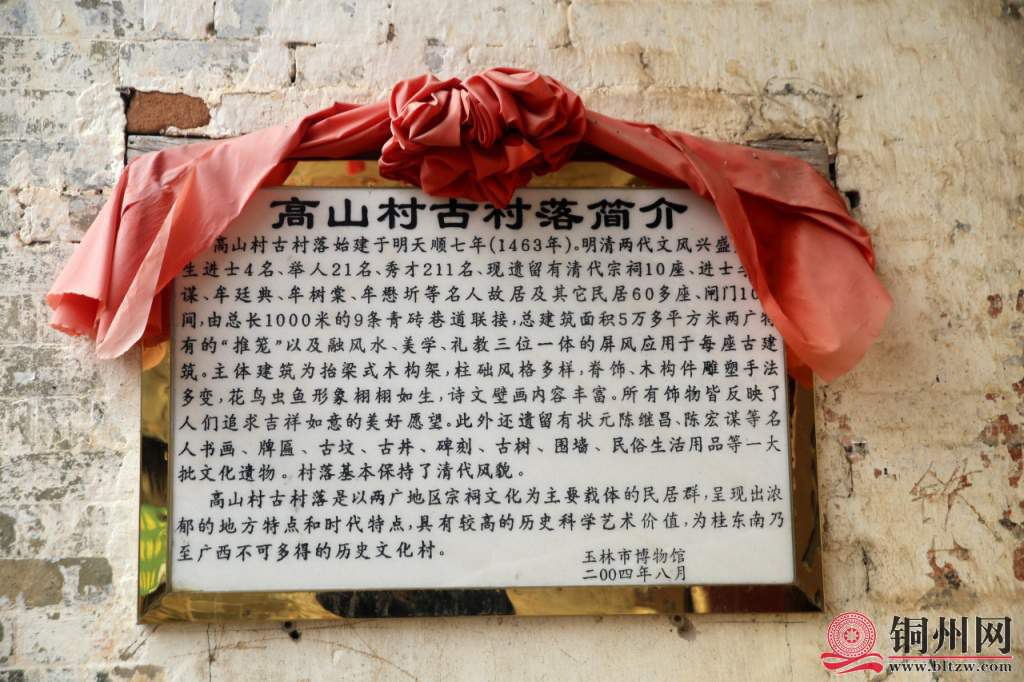 高山村古村落简介
高山村古村落始建于明天顺七年(1463年)。明清两代文风兴盛
生进士4名、举人21名、秀才211名、现遗留有清代宗祠10座、进士
谋、牟廷典、牟树棠、牟懋圻等名人故居及其它民居60多座、闸门10
间,由总长1000米的9条青砖巷道联接,总建筑面积5万多平方米两广特
有的“推笼”以及融风水、美学、礼教三位一体的屏风应用于每座古建
筑。主体建筑为抬梁式木构架,柱础风格多样,脊饰、木构件雕塑手法
多变,花鸟虫鱼形象栩栩如生,诗文壁画内容丰富。所有饰物皆反映了
人们追求吉祥如意的美好愿望。此外还遗留有状元陈继昌、陈宏谋等名
人书画、牌匾、古坟、古井、碑刻、古树、围墙、民俗生活用品等一大
批文化遗物。村落基本保持了清代风貌。
高山村古村落是以两广地区宗祠文化为主要载体的民居群,呈现出浓
郁的地方特点和时代特点,具有较高的历史科学艺术价值,为桂东南乃
至广西不可多得的历史文化村。
玉林市博物馆
二00四年八月
铜州网
www.bltzw.com